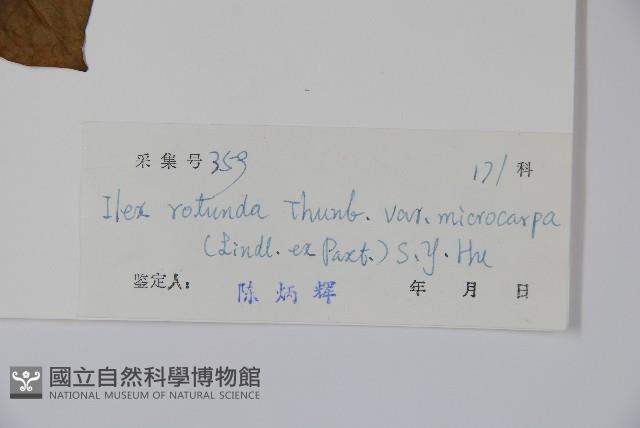 采集号 359 171 科
Ilex rotunda Thunb. var. microcarpa
(Lindl. ex Paxt.) S. Y. Hu
鉴定人: 陈炳辉 年 月 日
國立自然科學博物館
NATIONAL MUSEUM OF NATURAL SCIENCE